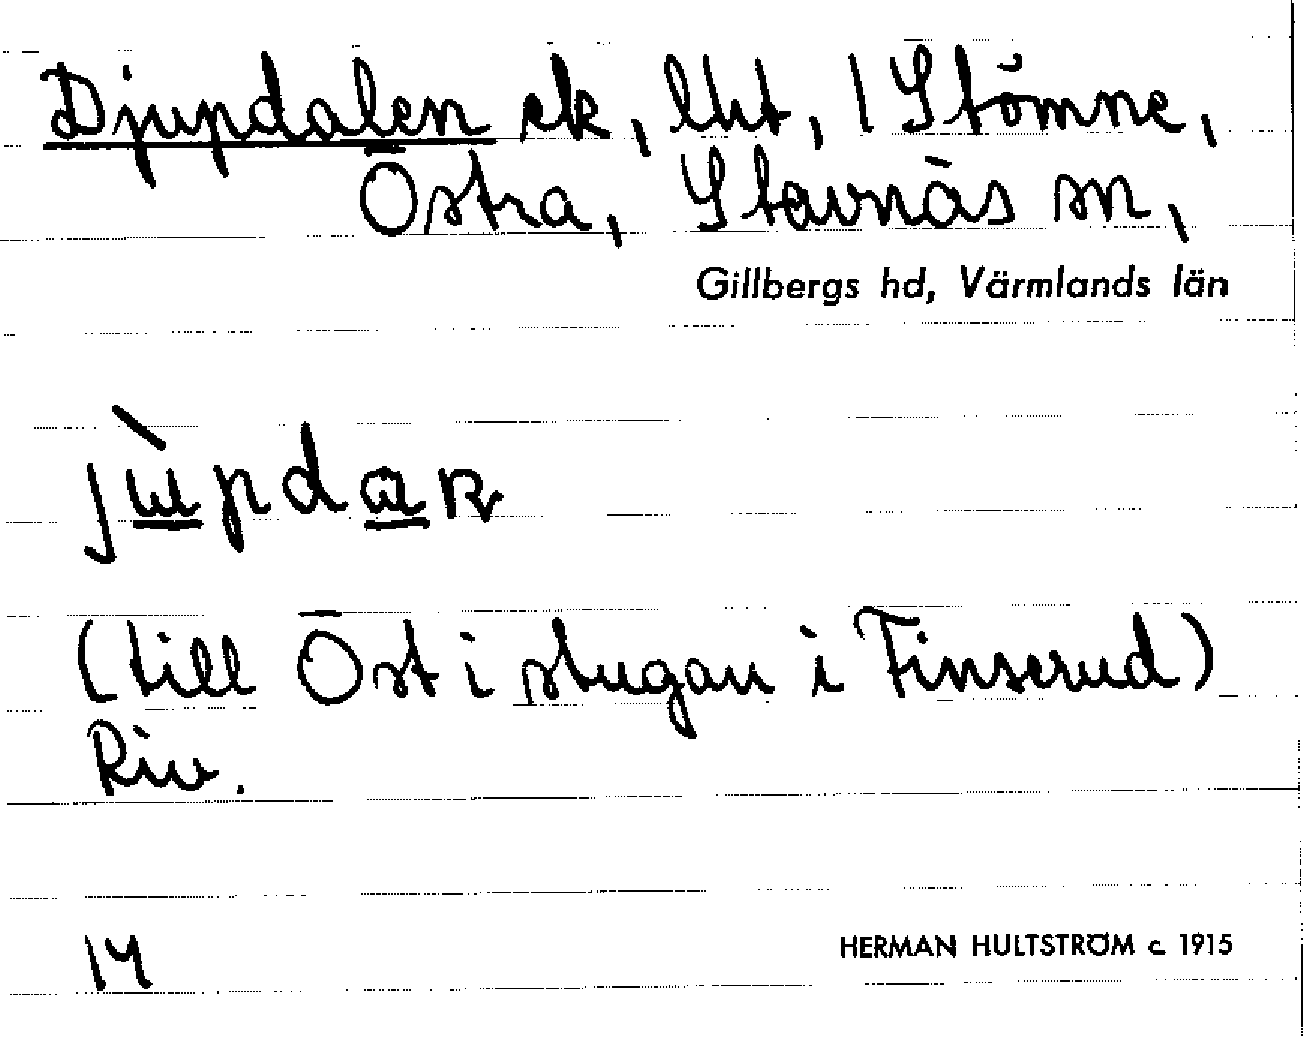 Djupdalen ek, lht, 1 Stömne,
Östra, Stavnäs sn,
Gillbergs hd, Värmlands län
(till Öst i stugan i Finserud)
Riv.
14
HERMAN HULTSTRÖM c. 1915